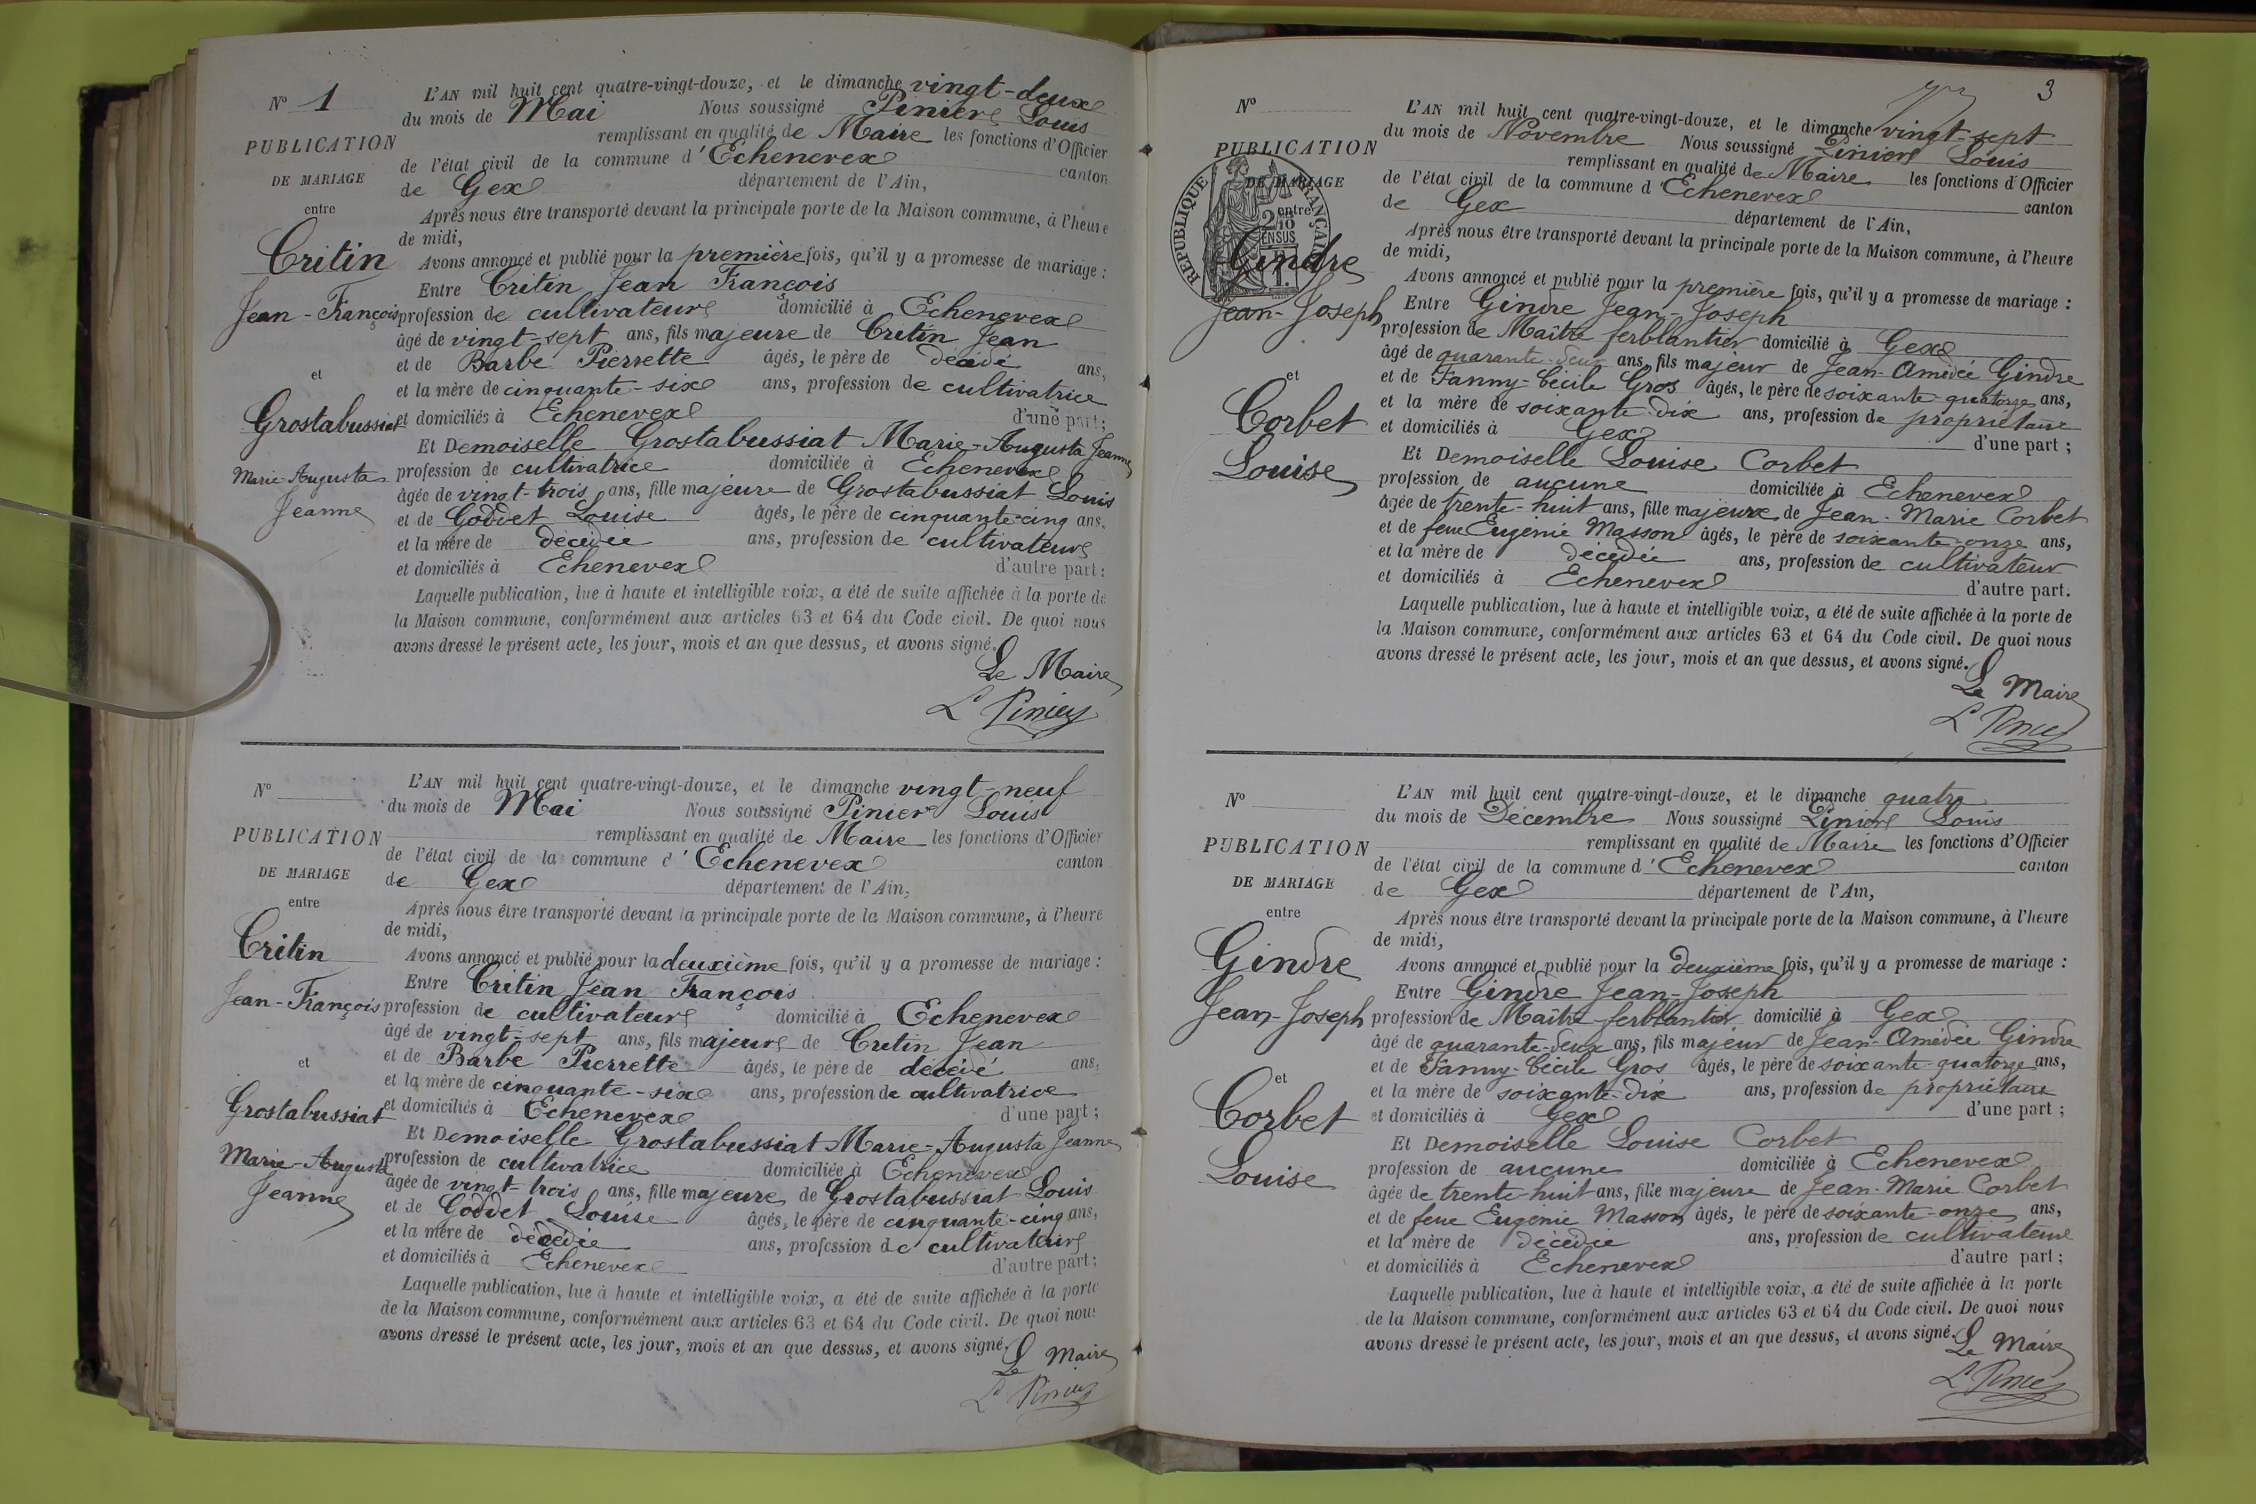 Nº 1
PUBLICATION
DE MARIAGE
entre
Critin
Jean-François
et
Grostabussiat
Marie-Augusta
Jeanne
L'AN mil huit cent quatre-vingt-douze, et le dimanche vingt-deux
du mois de Mai Nous soussigné Pinier Louis
remplissant en qualité de Maire les fonctions d'Officier
de l'état civil de la commune d'Echenevex canton
de Gex département de l'Ain,
Après nous être transporté devant la principale porte de la Maison commune, à l'heure
de midi,
Avons annoncé et publié pour la première fois, qu'il y a promesse de mariage :
Entre Critin Jean François
profession de cultivateur domicilié à Echenevex
âgé de vingt-sept ans, fils majeure de Critin Jean
et de Barbe Pierrette âgés, le père de décédé ans,
et la mère de cinquante-six ans, profession de cultivatrice
et domiciliés à Echenevex d'une part ;
Et Demoiselle Grostabussiat Marie-Augusta Jeanne
profession de cultivatrice domiciliée à Echenevex
âgée de vingt-trois ans, fille majeure de Grostabussiat Louis
et de Goddet Louise âgés, le père de cinquante-cinq ans,
et la mère de décédée ans, profession de cultivateur
et domiciliés à Echenevex d'autre part ;
Laquelle publication, lue à haute et intelligible voix, a été de suite affichée à la porte de
la Maison commune, conformément aux articles 63 et 64 du Code civil. De quoi nous
avons dressé le présent acte, les jour, mois et an que dessus, et avons signé.
Le Maire
L Pinier
Nº
PUBLICATION
DE MARIAGE
entre
Critin
Jean-François
et
Grostabussiat
Marie-Augusta
Jeanne
L'AN mil huit cent quatre-vingt-douze, et le dimanche vingt-neuf
du mois de Mai Nous soussigné Pinier Louis
remplissant en qualité de Maire les fonctions d'Officier
de l'état civil de la commune d'Echenevex canton
de Gex département de l'Ain,
Après nous être transporté devant la principale porte de la Maison commune, à l'heure
de midi,
Avons annoncé et publié pour la deuxième fois, qu'il y a promesse de mariage :
Entre Critin Jean François
profession de cultivateur domicilié à Echenevex
âgé de vingt-sept ans, fils majeur de Critin Jean
et de Barbe Pierrette âgés, le père de décédé ans,
et la mère de cinquante-six ans, profession de cultivatrice
et domiciliés à Echenevex d'une part ;
Et Demoiselle Grostabussiat Marie-Augusta Jeanne
profession de cultivatrice domiciliée à Echenevex
âgée de vingt-trois ans, fille majeure de Grostabussiat Louis
et de Goddet Louise âgés, le père de cinquante-cinq ans,
et la mère de décédée ans, profession de cultivateur
et domiciliés à Echenevex d'autre part ;
Laquelle publication, lue à haute et intelligible voix, a été de suite affichée à la porte
de la Maison commune, conformément aux articles 63 et 64 du Code civil. De quoi nous
avons dressé le présent acte, les jour, mois et an que dessus, et avons signé.
Le Maire
L Pinier
3
Nº
PUBLICATION
DE MARIAGE
entre
RÉPUBLIQUE FRANÇAISE
Gindre
Jean-Joseph
et
Corbet
Louise
L'AN mil huit cent quatre-vingt-douze, et le dimanche vingt-sept
du mois de Novembre Nous soussigné Pinier Louis
remplissant en qualité de Maire les fonctions d'Officier
de l'état civil de la commune d'Echenevex canton
de Gex département de l'Ain,
Après nous être transporté devant la principale porte de la Maison commune, à l'heure
de midi,
Avons annoncé et publié pour la première fois, qu'il y a promesse de mariage :
Entre Gindre Jean-Joseph
profession de Maître ferblantier domicilié à Gex
âgé de quarante-deux ans, fils majeur de Jean-Amédée Gindre
et de Fanny-Cécile Gros âgés, le père de soixante-quatorze ans,
et la mère de soixante-dix ans, profession de propriétaire
et domiciliés à Gex d'une part ;
Et Demoiselle Louise Corbet
profession de aucune domiciliée à Echenevex
âgée de trente-huit ans, fille majeure de Jean-Marie Corbet
et de feue Eugénie Masson âgés, le père de soixante-onze ans,
et la mère de décédée ans, profession de cultivateur
et domiciliés à Echenevex d'autre part.
Laquelle publication, lue à haute et intelligible voix, a été de suite affichée à la porte de
la Maison commune, conformément aux articles 63 et 64 du Code civil. De quoi nous
avons dressé le présent acte, les jour, mois et an que dessus, et avons signé.
Le Maire
L Pinier
Nº
PUBLICATION
DE MARIAGE
entre
Gindre
Jean-Joseph
et
Corbet
Louise
L'AN mil huit cent quatre-vingt-douze, et le dimanche quatre
du mois de Décembre Nous soussigné Pinier Louis
remplissant en qualité de Maire les fonctions d'Officier
de l'état civil de la commune d'Echenevex canton
de Gex département de l'Ain,
Après nous être transporté devant la principale porte de la Maison commune, à l'heure
de midi,
Avons annoncé et publié pour la deuxième fois, qu'il y a promesse de mariage :
Entre Gindre Jean-Joseph
profession de Maître ferblantier domicilié à Gex
âgé de quarante-deux ans, fils majeur de Jean-Amédée Gindre
et de Fanny-Cécile Gros âgés, le père de soixante-quatorze ans,
et la mère de soixante-dix ans, profession de propriétaire
et domiciliés à Gex d'une part ;
Et Demoiselle Louise Corbet
profession de aucune domiciliée à Echenevex
âgée de trente-huit ans, fille majeure de Jean-Marie Corbet
et de feue Eugénie Masson âgés, le père de soixante-onze ans,
et la mère de décédée ans, profession de cultivateur
et domiciliés à Echenevex d'autre part ;
Laquelle publication, lue à haute et intelligible voix, a été de suite affichée à la porte
de la Maison commune, conformément aux articles 63 et 64 du Code civil. De quoi nous
avons dressé le présent acte, les jour, mois et an que dessus, et avons signé.
Le Maire
L Pinier